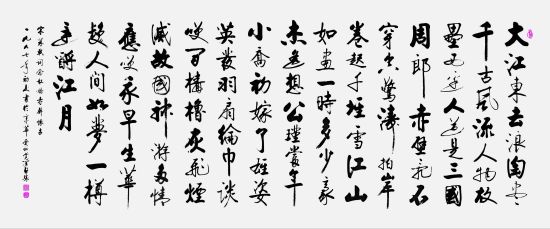 大江東去浪淘尽
千古風流人物故
壘西边人道是三國
周郎赤壁乱石
穿空驚濤拍岸
卷起千堆雪江山
如畫一時多少豪
杰遥想公瑾當年
小喬初嫁了雄姿
英發羽扇綸巾談
笑間檣櫓灰飛煙
滅故國神游多情
應笑我早生華
髮人間如夢一樽
還酹江月